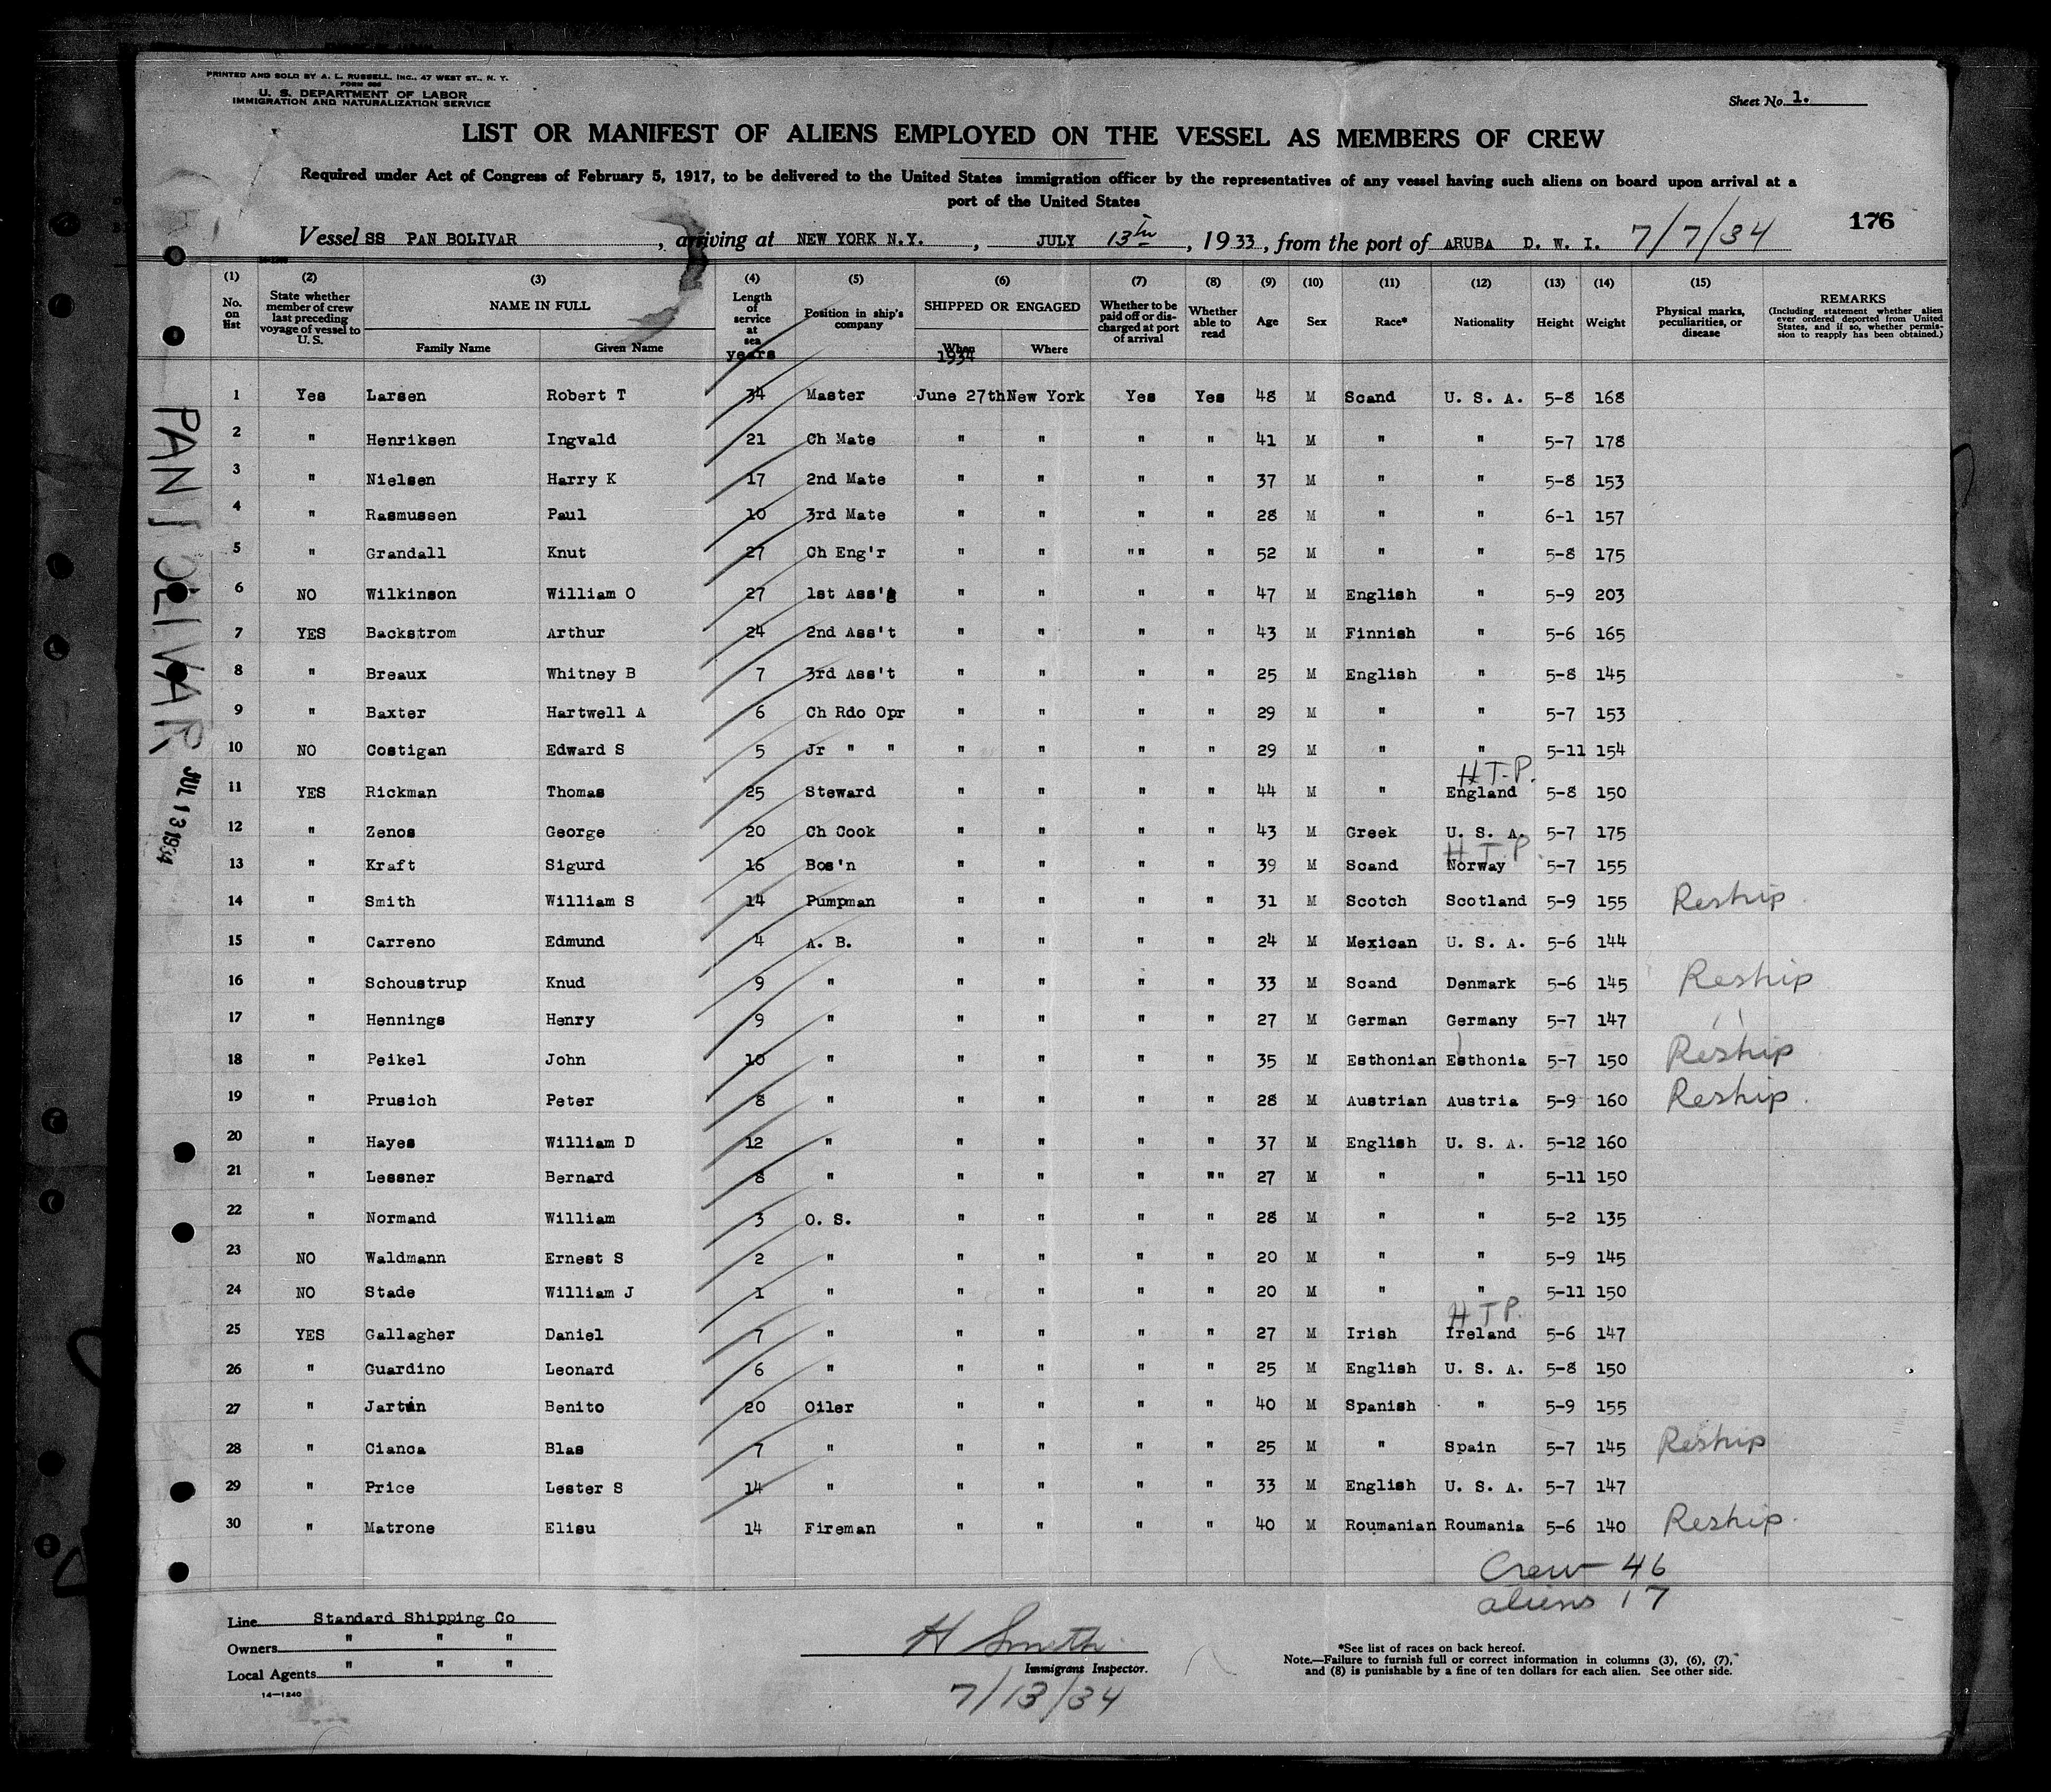 PRINTED AND SOLD BY A. L. RUSSELL, INC., 47 WEST ST., N. Y.
U. S. DEPARTMENT OF LABOR
IMMIGRATION AND NATURALIZATION SERVICE
Sheet No. 1.
LIST OR MANIFEST OF ALIENS EMPLOYED ON THE VESSEL AS MEMBERS OF CREW
Required under Act of Congress of February 5, 1917, to be delivered to the United States immigration officer by the representatives of any vessel having such aliens on board upon arrival at a
port of the United States
176
Vessel SS PAN BOLIVAR, arriving at NEW YORK N.Y., JULY 13th, 1933, from the port of ARUBA D. W. I. 7/7/34
(1) No. on list (2) State whether member of crew last preceding voyage of vessel to U. S. (3) NAME IN FULL Family Name Given Name (4) Length of service at sea years (5) Position in ship's company (6) SHIPPED OR ENGAGED When 1934 Where (7) Whether to be paid off or discharged at port of arrival (8) Whether able to read (9) Age (10) Sex (11) Race* (12) Nationality (13) Height (14) Weight (15) Physical marks, peculiarities, or disease REMARKS (Including statement whether alien ever ordered deported from United States, and if so, whether permission to reapply has been obtained.)
1 Yes Larsen Robert T 34 Master June 27th New York Yes Yes 48 M Scand U. S. A. 5-8 168
2 " Henriksen Ingvald 21 Ch Mate " " " " 41 M " " 5-7 178
3 " Nielsen Harry K 17 2nd Mate " " " " 37 M " " 5-8 153
4 " Rasmussen Paul 10 3rd Mate " " " " 28 M " " 6-1 157
5 " Grandall Knut 27 Ch Eng'r " " "" " 52 M " " 5-8 175
6 NO Wilkinson William O 27 1st Ass'g " " " " 47 M English " 5-9 203
7 YES Backstrom Arthur 24 2nd Ass't " " " " 43 M Finnish " 5-6 165
8 " Breaux Whitney B 7 3rd Ass't " " " " 25 M English " 5-8 145
9 " Baxter Hartwell A 6 Ch Rdo Opr " " " " 29 M " " 5-7 153
10 NO Costigan Edward S 5 Jr " " " " " " 29 M " " 5-11 154
H.T.P.
11 YES Rickman Thomas 25 Steward " " " " 44 M " England 5-8 150
12 " Zenos George 20 Ch Cook " " " " 43 M Greek U. S. A. 5-7 175
H T P.
13 " Kraft Sigurd 16 Bos'n " " " " 39 M Scand Norway 5-7 155
14 " Smith William S 14 Pumpman " " " " 31 M Scotch Scotland 5-9 155 Reship
15 " Carreno Edmund 4 A. B. " " " " 24 M Mexican U. S. A. 5-6 144
16 " Schoustrup Knud 9 " " " " " 33 M Scand Denmark 5-6 145 Reship
17 " Hennings Henry 9 " " " " " 27 M German Germany 5-7 147 "
18 " Peikel John 10 " " " " " 35 M Esthonian Esthonia 5-7 150 Reship
19 " Prusich Peter 8 " " " " " 28 M Austrian Austria 5-9 160 Reship.
20 " Hayes William D 12 " " " " " 37 M English U. S. A. 5-12 160
21 " Lessner Bernard 8 " " " " "" 27 M " " 5-11 150
22 " Normand William 3 O. S. " " " " 28 M " " 5-2 135
23 NO Waldmann Ernest S 2 " " " " " 20 M " " 5-9 145
24 NO Stade William J 1 " " " " " 20 M " " 5-11 150
H T P.
25 YES Gallagher Daniel 7 " " " " " 27 M Irish Ireland 5-6 147
26 " Guardino Leonard 6 " " " " " 25 M English U. S. A. 5-8 150
27 " Jartin Benito 20 Oiler " " " " 40 M Spanish " 5-9 155
28 " Cianca Blas 7 " " " " " 25 M " Spain 5-7 145 Reship
29 " Price Lester S 14 " " " " " 33 M English U. S. A. 5-7 147
30 " Matrone Elisu 14 Fireman " " " " 40 M Roumanian Roumania 5-6 140 Reship.
Crew 46
aliens 17
Line Standard Shipping Co
Owners " " "
Local Agents " " "
14—1240
H Smith
Immigrant Inspector.
7/13/34
*See list of races on back hereof.
Note.—Failure to furnish full or correct information in columns (3), (6), (7),
and (8) is punishable by a fine of ten dollars for each alien. See other side.
PAN BOLIVAR
JUL 13 1934